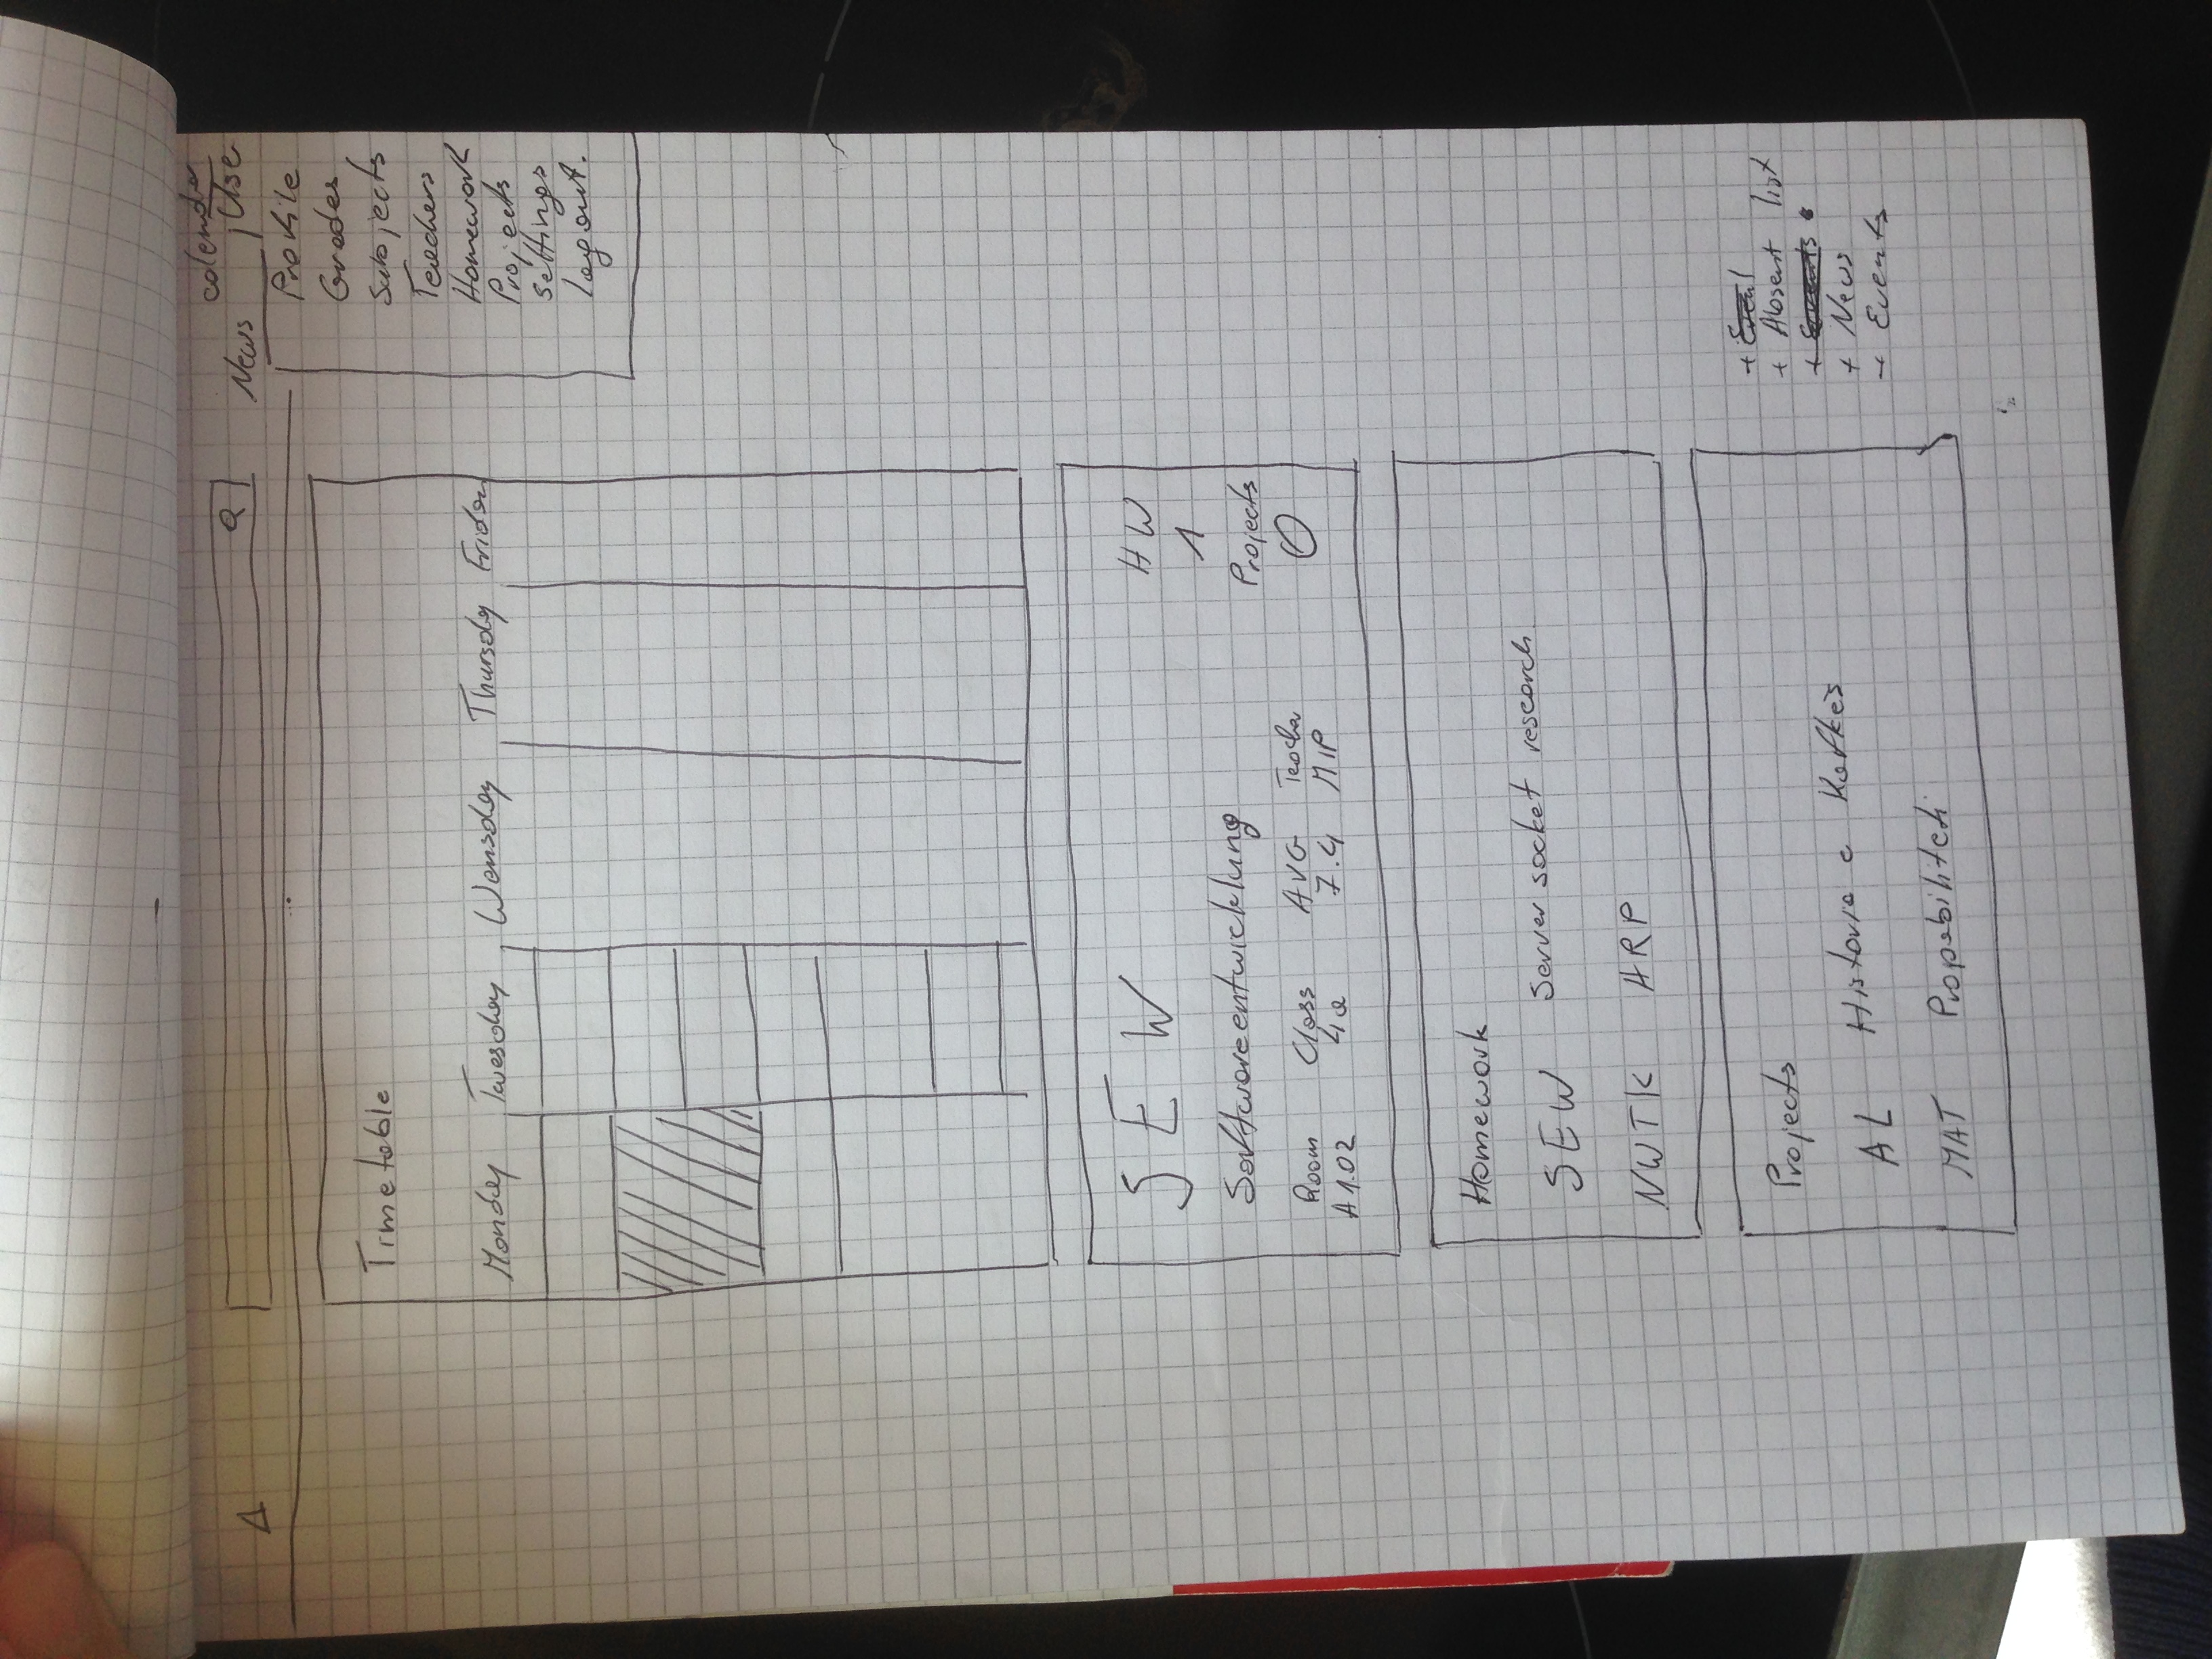 calendar
News User
Profile
Grades
Subjects
Teachers
Homework
Projects
Settings
logout.
Timetable
Monday Tuesday Wensday Thursday Friday
SEW
HW
1
Softwareentwicklung
Projects
0
Room Class AVG Teacher
A1.02 4a 7.4 MIP
Homework
SEW Server socket research
NWTK ARP
Projects
AL Historia e Kafkës
MAT Propabiliteti
+ Event
+ Absent list
+ Events
+ News
+ Events